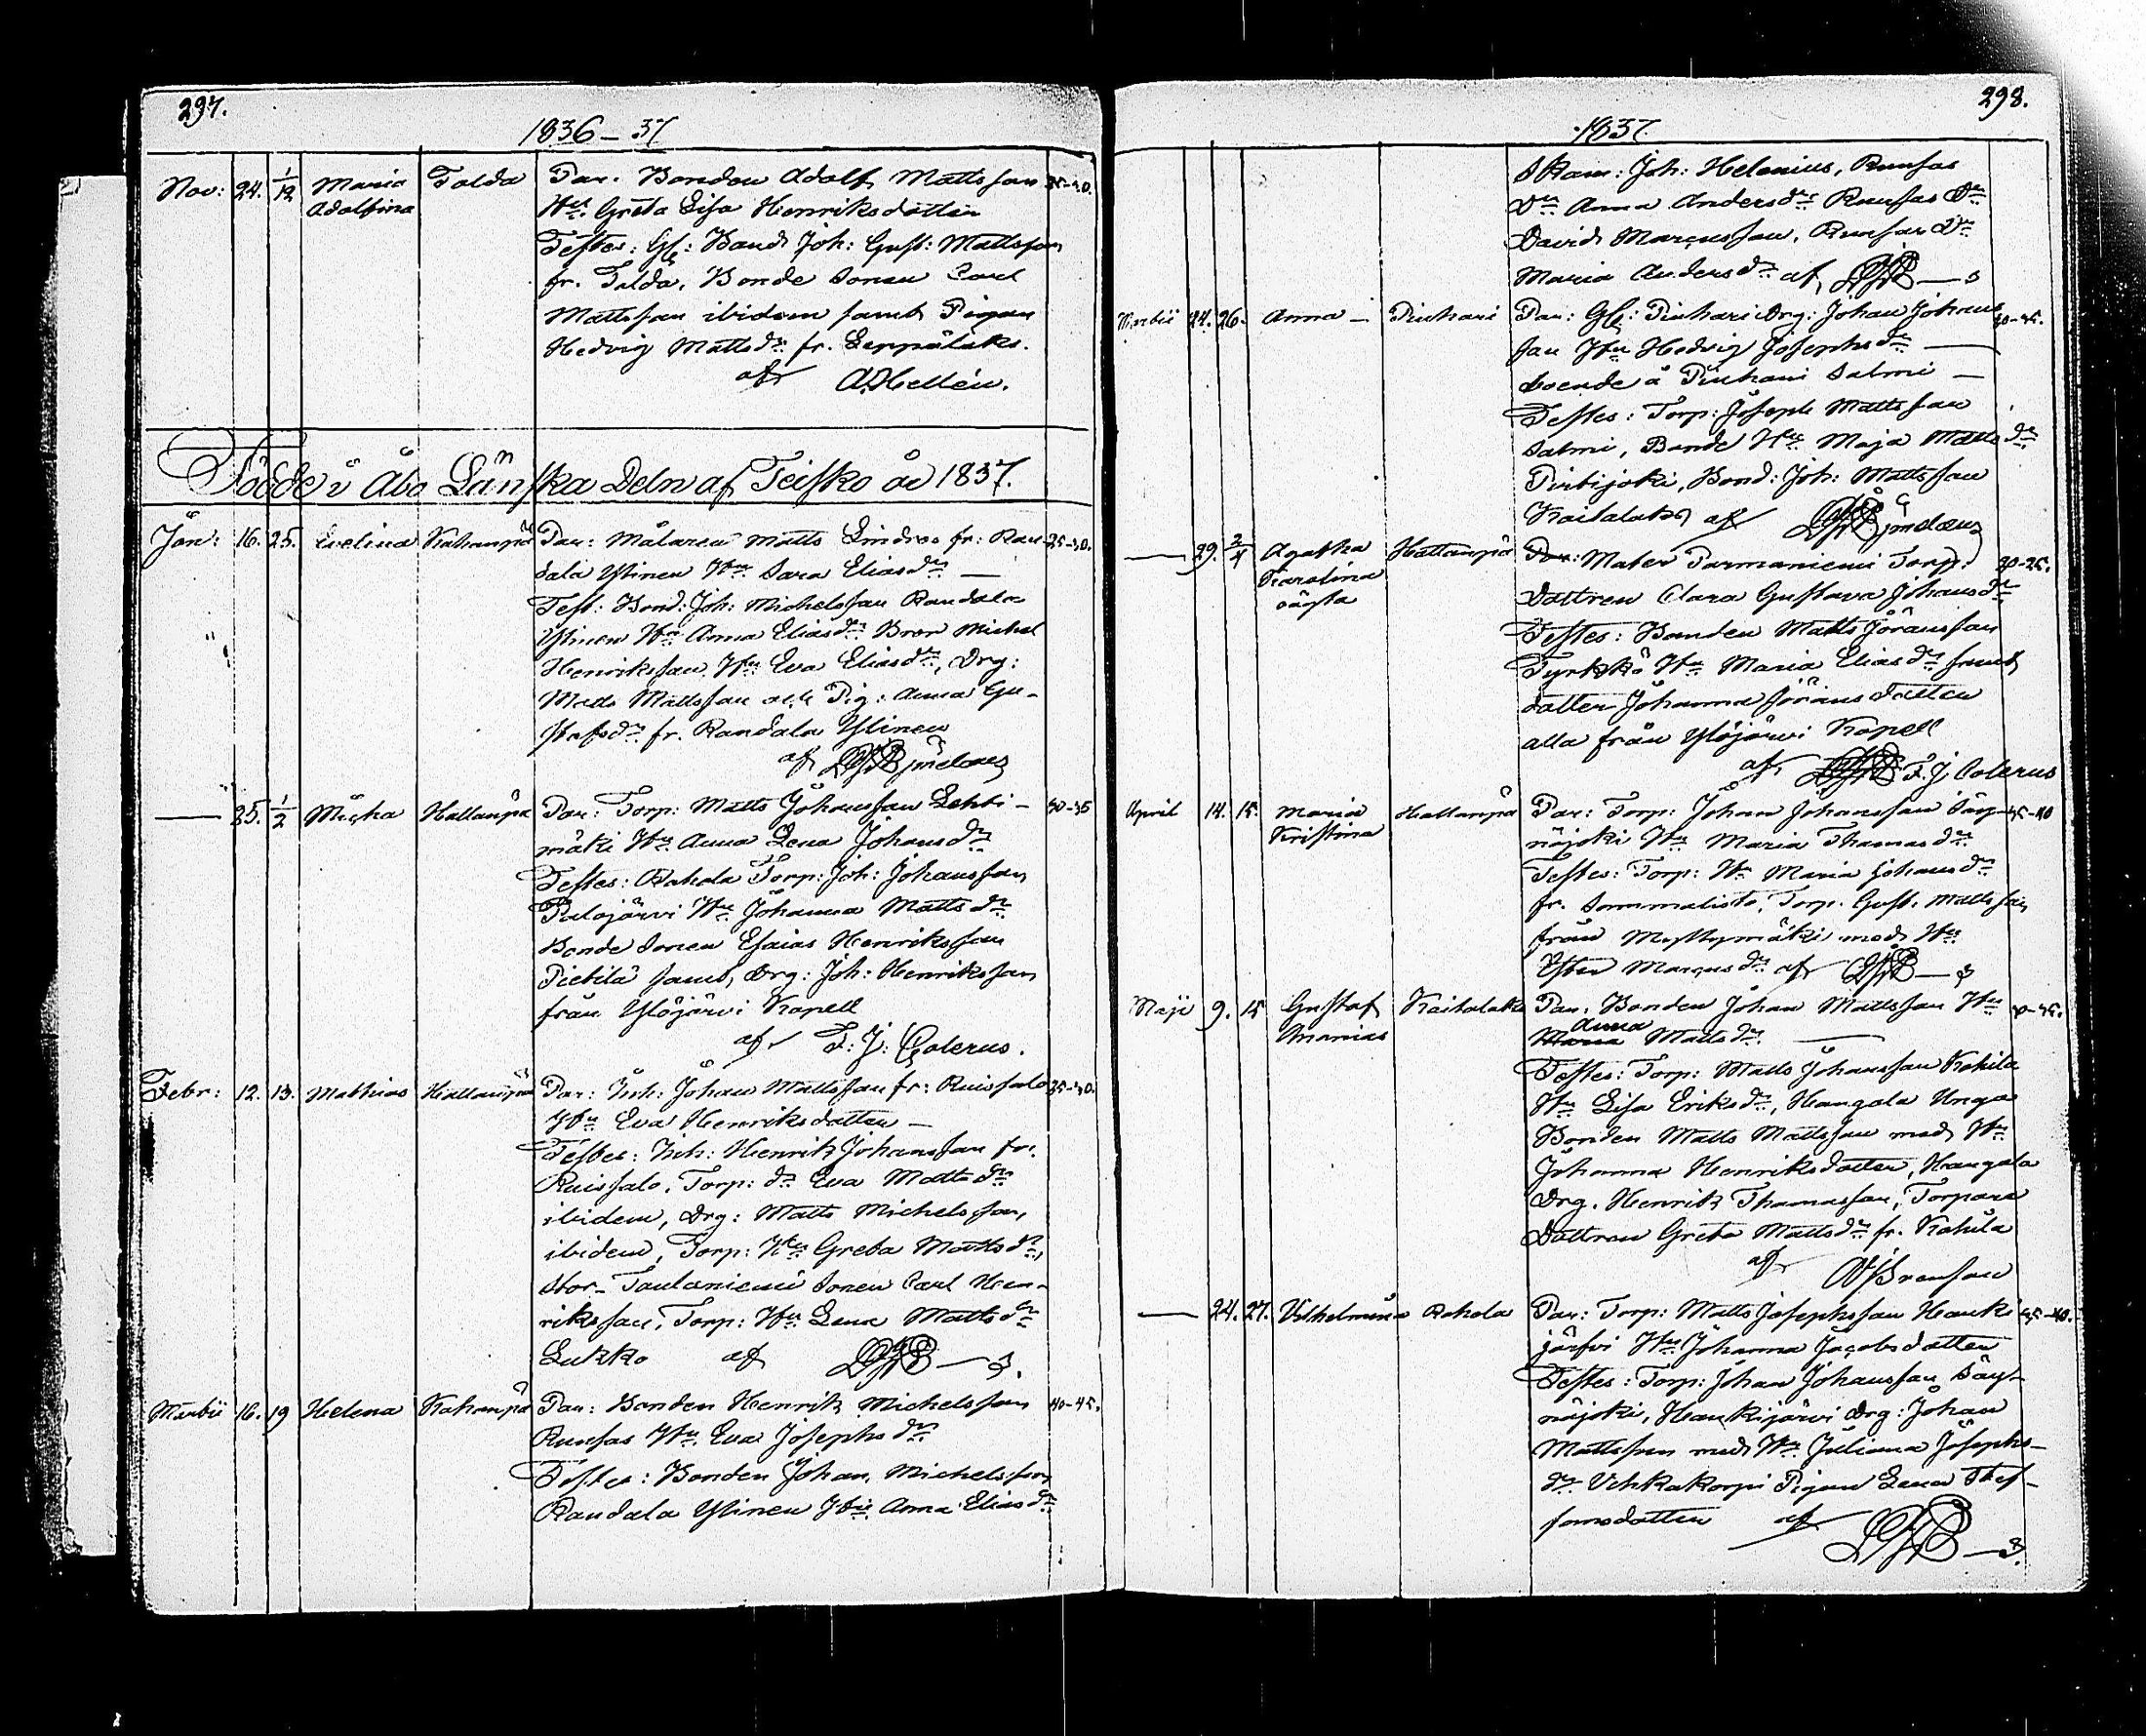 297.
1836-37
Nov: 24. 1/12 Maria Tolda Par. Bonden Adolf Mattsson 35-40.
Adolfina Hu. Greta Lisa Henriksdotter
Testes: Gl: Bond Joh: Gust: Mattsson
fr. Tolda, Bonde Sonen Carl
Mattsson ibidem samt Pigan
Hedvig Mattsdr fr. Leppälaks.
af A. Hellén.
Födde i Åbo Länska Deln af Teisko år 1837.
Jan: 16. 25. Evelina Kahanpä Par: Målaren Matts Lindroo fr: Ran- 25-30.
dala Ylinen Hu Sara Eliasdr —
Test: Bond: Joh: Michelsson Randala
Ylinen Hu Anna Eliasdr Bror Michel
Henriksson, Hu Eva Eliasdr, Drg:
Matts Mattsson och Pig: Anna Gu-
stafsdr fr. Randala Ylinen
af
— 25. 1/2 Micha Hallanpä Par: Torp: Matts Johansson Lehti- 30-35
mäki Hu Anna Lena Johansdr
Testes: Rahola Torp: Joh: Johansson
Palojärvi Hu Johanna Mattsdr
Bonde Sonen Esaias Henriksson
Pietilä samt Drg: Joh: Henriksson
från Ylöjärvi Kapell
af F: J: Colerus.
Febr: 12. 13. Mathias Hallanpä Par: Inh: Johan Mattsson fr: Ruissalo 25-30.
Hu Eva Henriksdotter —
Testes: Inh: Henrik Johansson fr.
Ruissalo, Torp: dr Eva Mattsdr
ibidem, Drg: Matts Michelsson,
ibidem, Torp: Hu Greta Mattsdr,
Stor-Taulaniemi Sonen Carl Hen-
riksson, Torp: Hu Lena Mattsdr
Lukko af
Martii 16. 19 Helena Kahanpä Par: Bonden Henrik Michelsson 40-45.
Runsas Hu. Eva Josephsdr
Testes: Bonden Johan Michelsson
Randala Ylinen Hu Anna Eliasdr
298.
1837.
Skom: Joh: Helenius, Runsas
Dr Anna Andersdr Runsas Dr
David Marcusson, Runsas Dr
Maria Andersdr af
Martii 24. 26. Anna — Pinhani Par: Gl: Pinhani Drg: Johan Johans- 40-45.
son Hu Hedvig Josephsdr —
boende å Pinhani Salmi —
Testes: Torp: Joseph Mattsson
Salmi, Bonde Hu Maja Mattsdr
Pirttijoki, Bond: Joh: Mattsson
Kaitalaks af
— 29. 2/4 Agatha Hattanpä Par: Mater Parmaniemi Torp: 20-25.
Karolina Dottren Clara Gustava Johansdr
oägta Testes: Bonden Matts Göransson
Tyrkkö Hu Maria Eliasdr samt
dotter Johanna Göransdotter
alla från Ylöjärvi Kapell
af F. J. Colerus
April 14. 15. Maria Hattanpä Par: Torp: Johan Johansson Säy- 35-40
Kristina näjoki Hu Maria Thomasdr
Testes: Torp: Hu Maria Johansdr
fr. Sommalisto, Torp. Gust. Mattsson
från Myllymäki med Hu
Ester Marcusdr af
Maji 9. 15 Gustaf Kaitalaks Par. Bonden Johan Mattsson Hu 40-45.
Ananias Maria Anna Mattsdr. —
Testes: Torp: Matts Johansson Kohila
Hu Lisa Eriksdr, Hangala Unga
Bonden Matts Mattsson med Hu
Johanna Henriksdotter, Hangala
Drg. Henrik Thomasson, Torpare
Dottren Greta Mattsdr fr. Kohila
af
— 24. 27. Vilhelmina Rahola Par: Torp: Matts Josephsson Hauki 35-40.
järfvi Hu Johanna Jacobsdotter
Testes: Torp: Johan Johansson Säy-
näjoki, Haukijärvi Drg: Johan
Mattsson med Hu Juliana Josephs-
dr Vehkakorpi Pigan Lena Stef-
fansdotter af